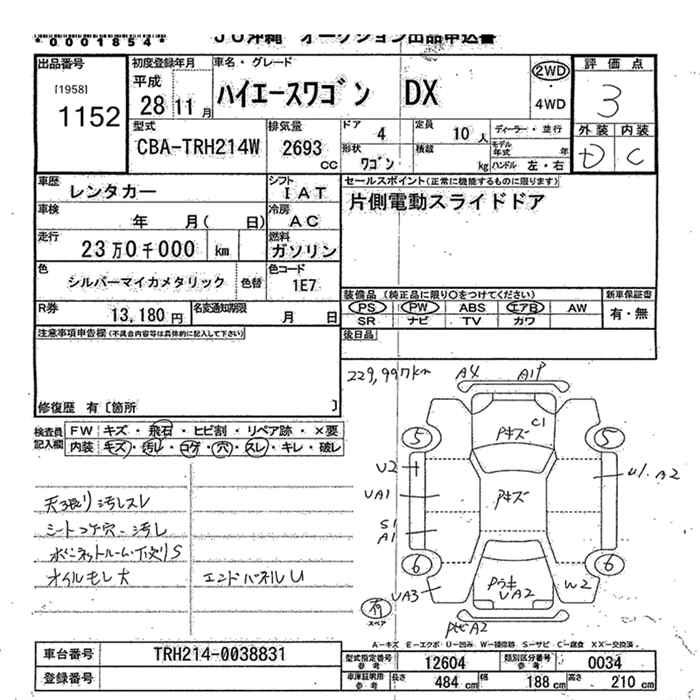 *0001854*
JU沖縄 オークション出品申込書
出品番号
[1958]
1152
初度登録年月
平成
28 11月
車名・グレード
ハイエースワゴン DX
2WD
・
4WD
評価点
3
外装 内装
D C
型式
CBA-TRH214W
排気量
2693
cc
ドア 4
定員 10人
ディーラー・並行
モデル年式 年
形状 ワゴン
積載 kg
ハンドル 左・右
車歴 レンタカー
シフト IAT
車検 年 月( 日)
冷房 AC
走行 23万0千000 km
燃料 ガソリン
色 シルバーマイカメタリック
色替
色コード 1E7
R券 13,180円
名変通知期限 月 日
セールスポイント(正常に機能するものに限ります)
片側電動スライドドア
装備品(純正品に限り○をつけてください)
新車保証書
PS PW ABS エアB AW
有・無
SR ナビ TV カワ
後日品
注意事項申告欄(不具合内容等は具体的に記入して下さい)
修復歴 有〔箇所 〕
229,997km
検査員記入欄
FW キズ・飛石・ヒビ割・リペア跡・×要
内装 キズ・汚レ・コゲ・穴・スレ・キレ・破レ
天張り汚レスレ
シートコゲ穴・汚レ
ボンネットルーム・下廻りS
オイルモレ大 エンドパネルU
A4 A1P
C1
Pキズ
5 5
U2
U1.A2
UA1
Pキズ
S1
A1
6 6
UA3
UA2
W2
スペア
A2
A-キズ E-エクボ U-凹み W-補修跡 S-サビ C-腐食 XX-交換済
車台番号 TRH214-0038831
登録番号
型式指定番号 参考 12604
類別区分番号 参考 0034
車庫証明用 参考
長さ 484 cm 幅 188 cm 高さ 210 cm